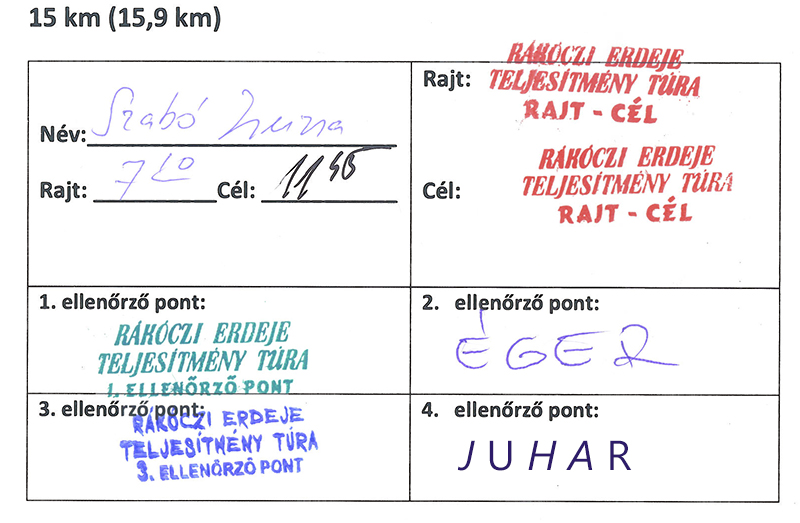 15 km (15,9 km)
Név: Szabó
Rajt: 7 Cél: 11
Rajt: RÁKÓCZI ERDEJE
TELJESÍTMÉNY TÚRA
RAJT - CÉL
Cél: RÁKÓCZI ERDEJE
TELJESÍTMÉNY TÚRA
RAJT - CÉL
1. ellenőrző pont:
RÁKÓCZI ERDEJE
TELJESÍTMÉNY TÚRA
1. ELLENŐRZŐ PONT
2. ellenőrző pont:
ÉGER
3. ellenőrző pont:
RÁKÓCZI ERDEJE
TELJESÍTMÉNY TÚRA
3. ELLENŐRZŐ PONT
4. ellenőrző pont:
JUHAR